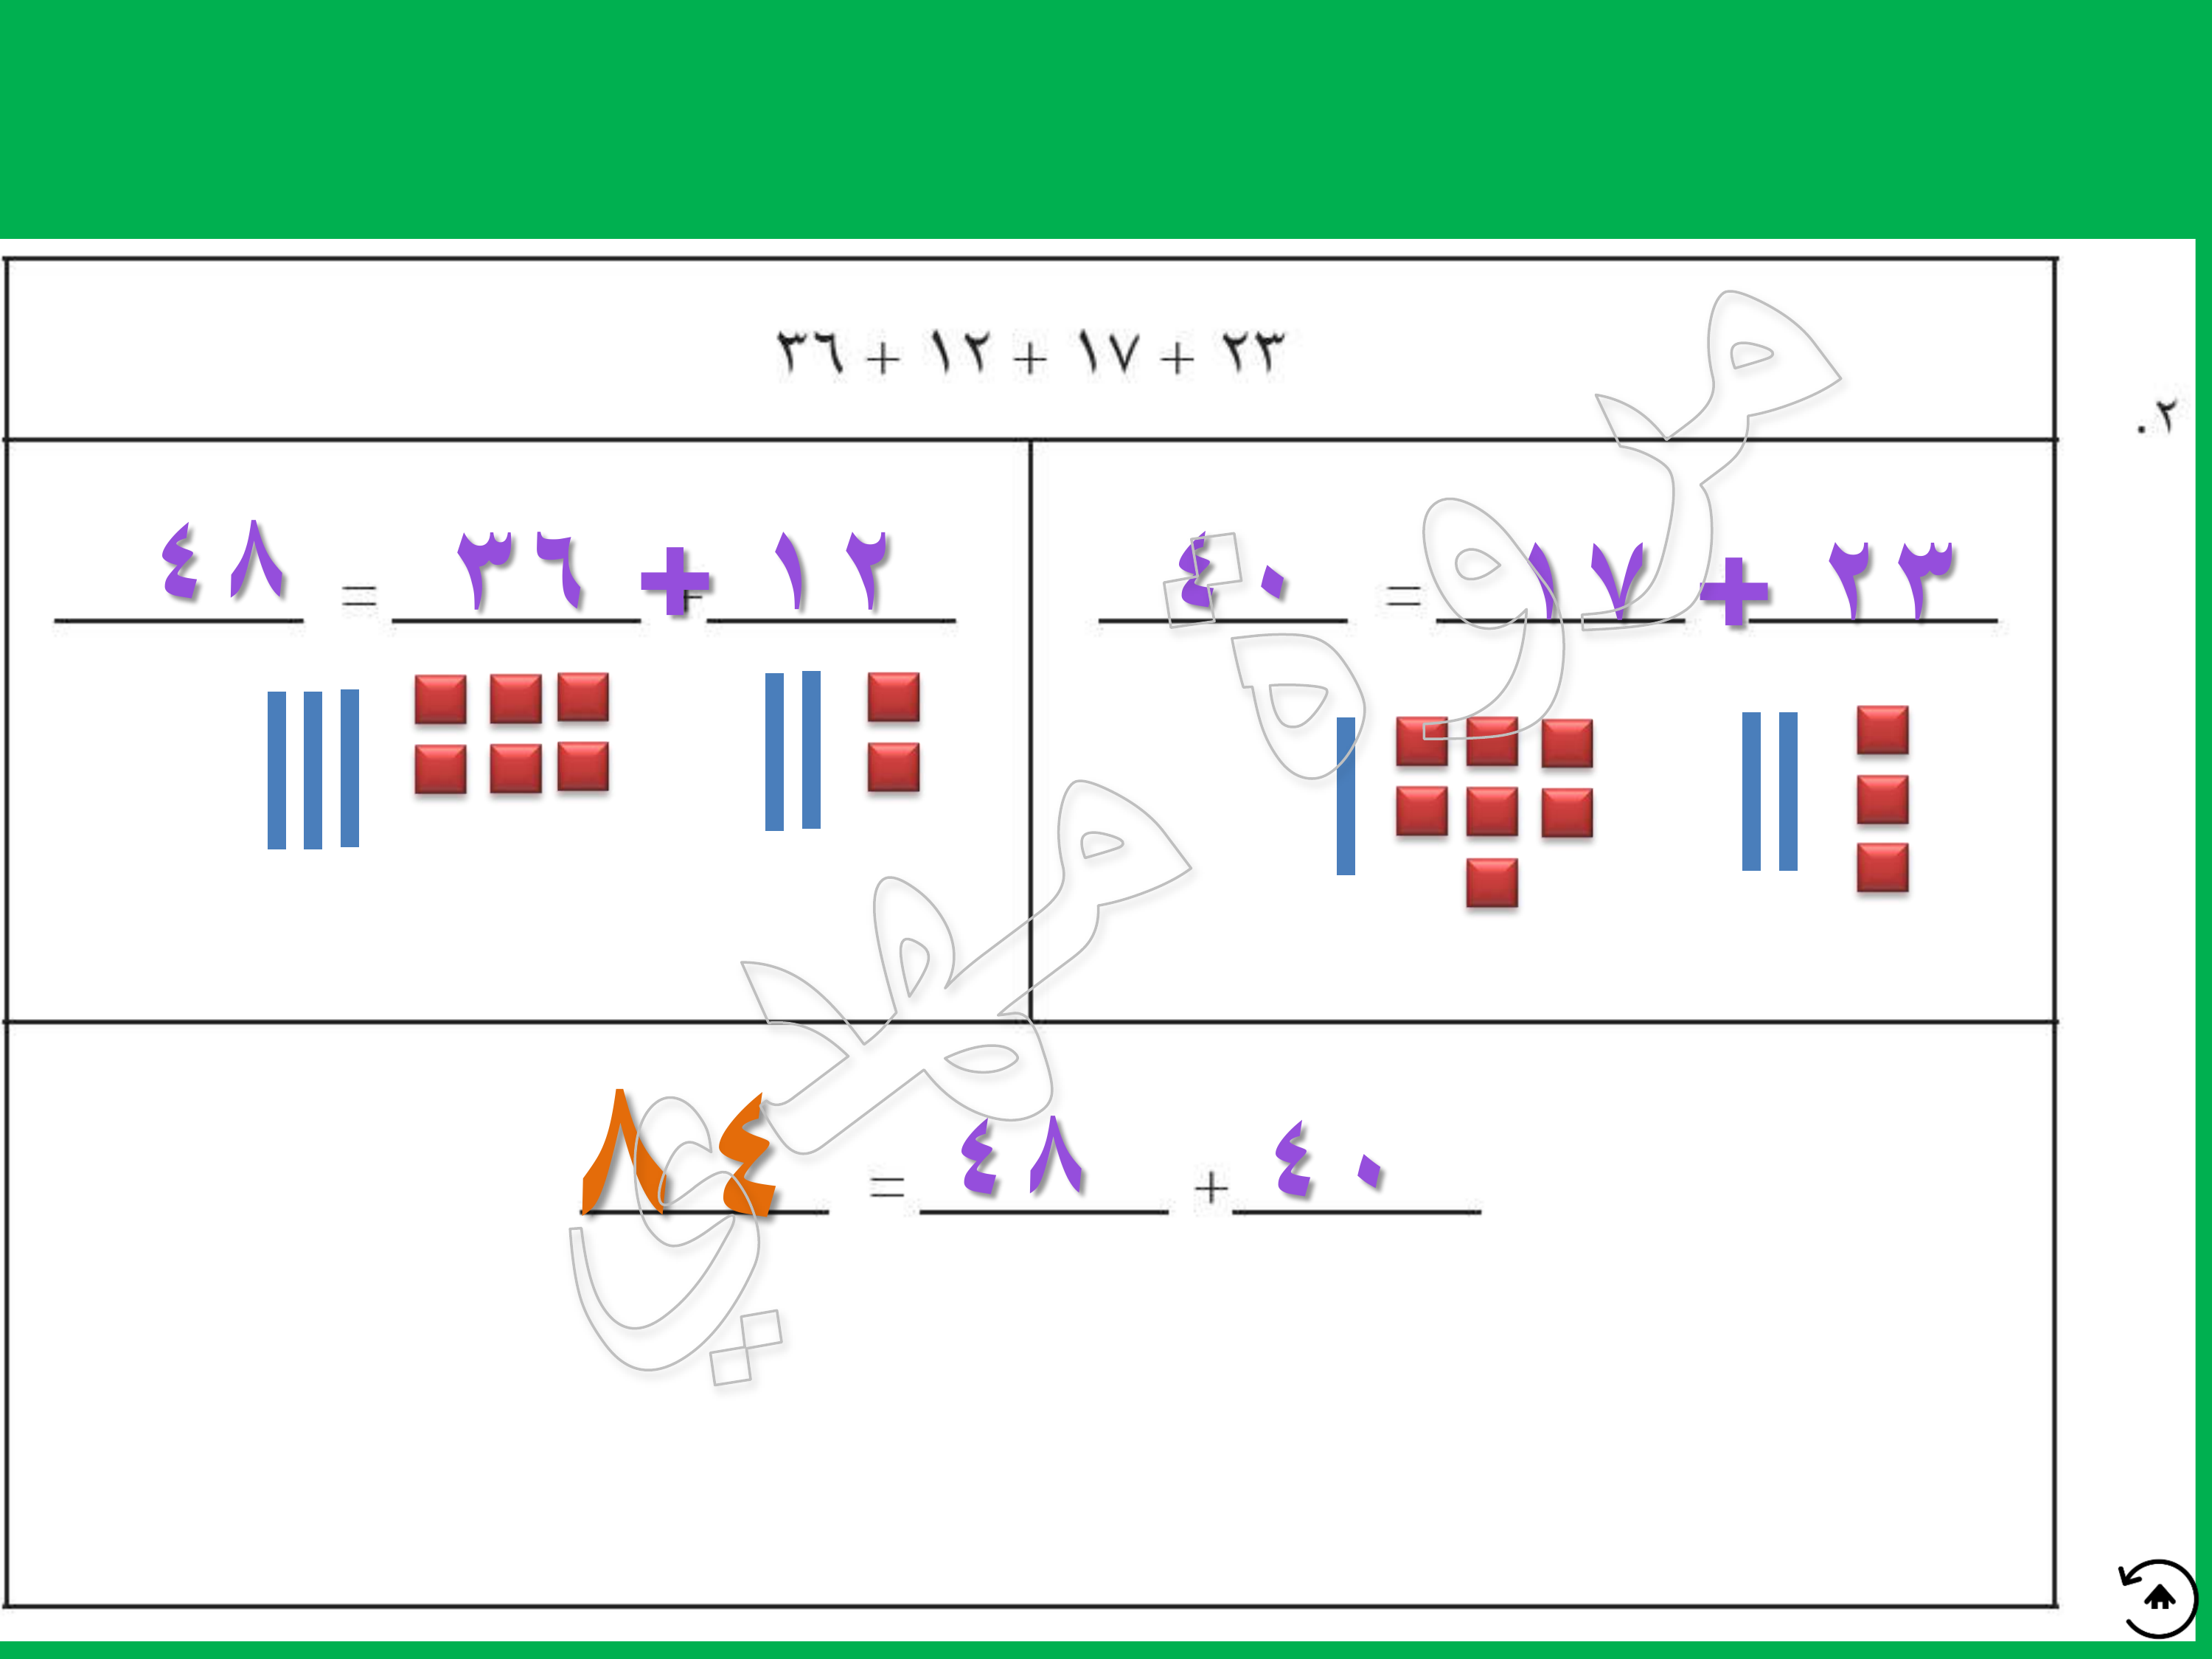 ٢٣ + ١٧ + ١٢ + ٣٦
٢.
٢٣ + ١٧ = ٤٠
١٢ + ٣٦ = ٤٨
٤٠ + ٤٨ = ٨٤